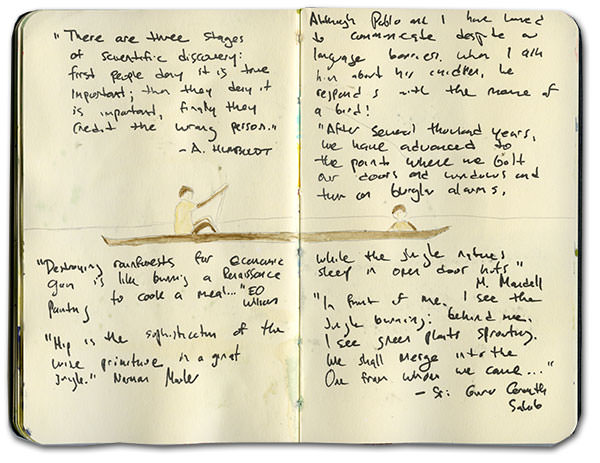 "There are three stages
of scientific discovery:
first people deny it is true
important; then they deny it
is important, finally they
credit the wrong person."
- A. HUMBOLDT
"Destroying rainforests for economic
gain is like burning a Renaissance
Painting to cook a meal..." EO
Wilson
"Hip is the sophistication of the
wise primitive in a giant
jungle." Norman Mailer
Although Pablo and I have learned
to communicate despite our
language barriers, when I ask
him about his children, he
responds with the name of
a bird!
"After several thousand years,
we have advanced to
the point where we bolt
our doors and windows and
turn on burglar alarms,
while the jungle natives
sleep in open door huts"
M. Mandell
"In front of me, I see the
Jungle burning; behind me,
I see green plants sprouting.
We shall merge into the
One from whom we came..."
- Sri Guru Granth
Sahib